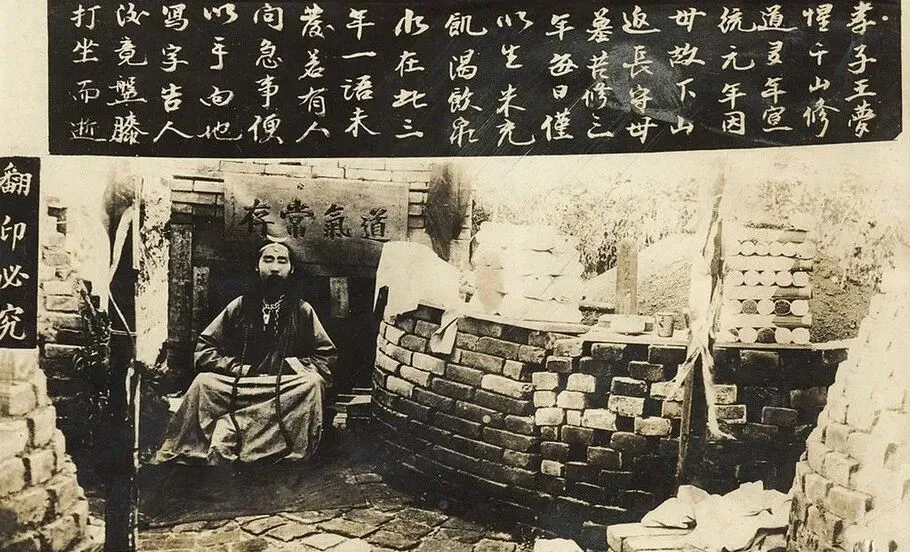 孝子王夢
惺千山修
道多年宣
統元年因
母故下山
返長守母
墓苦修三
年每日僅
以生米充
飢渴飲泉
水在此三
年一語未
發若有人
問急事便
以手向地
寫字告人
後竟盤膝
打坐而逝
翻印必究
道氣常存